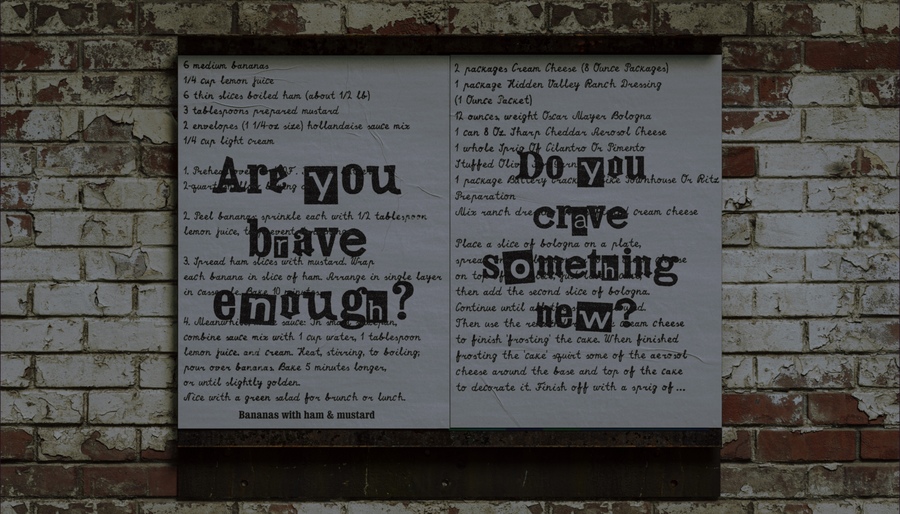 6 medium bananas
1/4 cup lemon juice
6 thin slices boiled ham (about 1/2 lb)
3 tablespoons prepared mustard
2 envelopes (1 1/4-oz size) hollandaise sauce mix
1/4 cup light cream
Are you
brave
enough?
2. Peel bananas sprinkle each with 1/2 tablespoon
lemon juice, to
3. Spread ham slices with mustard. Wrap
each banana in slice of ham. Arrange in single layer
in Bake 10
4. sauce: In
combine sauce mix with 1 cup water, 1 tablespoon
lemon juice and cream. Heat, stirring, to boiling;
pour over bananas. Bake 5 minutes longer,
or until slightly golden.
Nice with a green salad for brunch or lunch.
Bananas with ham & mustard
2 packages Cream Cheese (8 Ounce Packages)
1 package Hidden Valley Ranch Dressing
(1 Ounce Packet)
12 ounces, weight Oscar Mayer Bologna
1 can 8 Oz. Sharp Cheddar Aerosol Cheese
1 whole Sprig Of Cilantro Or Pimento
Stuffed
1 package Townhouse Or Ritz
Preparation
Mix ranch cream cheese
Do you
crave
something
new?
Place a slice of bologna on a plate,
on
then add the second slice of bologna.
Continue until
Then use the cream cheese
to finish 'frosting' the cake. When finished
frosting the 'cake' squirt some of the aerosol
cheese around the base and top of the cake
to decorate it. Finish off with a sprig of ...